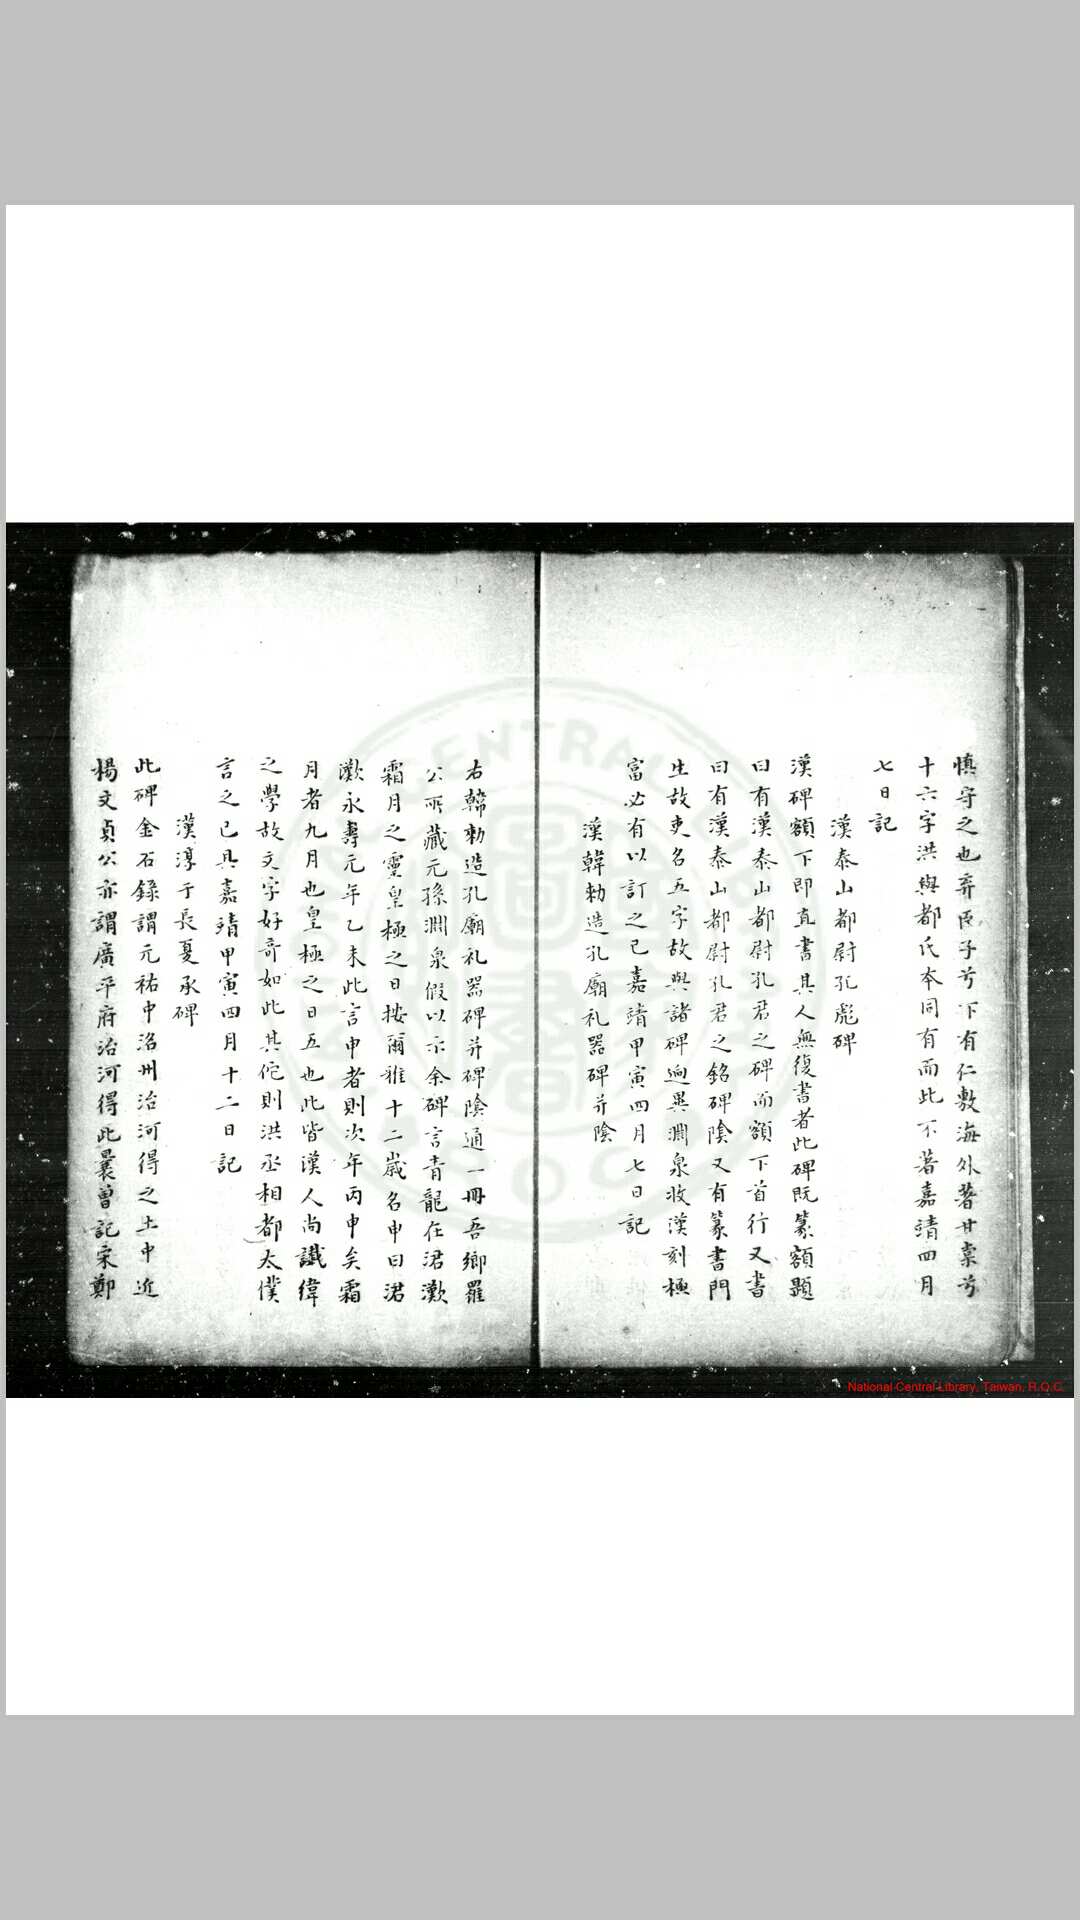 慎守之也弃臣子兮下有仁敷海外著甘棠兮
十六字洪與都氏本同有而此不著嘉靖四月
七日記
漢泰山都尉孔彪碑
漢碑額下即直書其人無復書者此碑既篆額題
曰有漢泰山都尉孔君之碑而額下首行又書
曰有漢泰山都尉孔君之銘碑陰又有篆書門
生故吏名五字故與諸碑迥異淵泉收漢刻極
富必有以訂之已嘉靖甲寅四月七日記
漢韓勑造孔廟礼器碑并陰
右韓勑造孔廟礼器碑并碑陰通一冊吾鄉羅
公所藏元孫淵泉假以示余碑言青龍在涒歎
霜月之靈皇極之日按爾雅十二歲名申曰涒
灘永壽元年乙未此言申者則次年丙申矣霜
月者九月也皇極之日五也此皆漢人尚讖緯
之學故文字好奇如此其佗則洪丞相都太僕
言之已具嘉靖甲寅四月十二日記
漢淳于長夏承碑
此碑金石錄謂元祐中洺州治河得之土中近
楊文貞公亦謂廣平府治河得此曩曾記宋鄭
National Central Library, Taiwan, R.O.C.